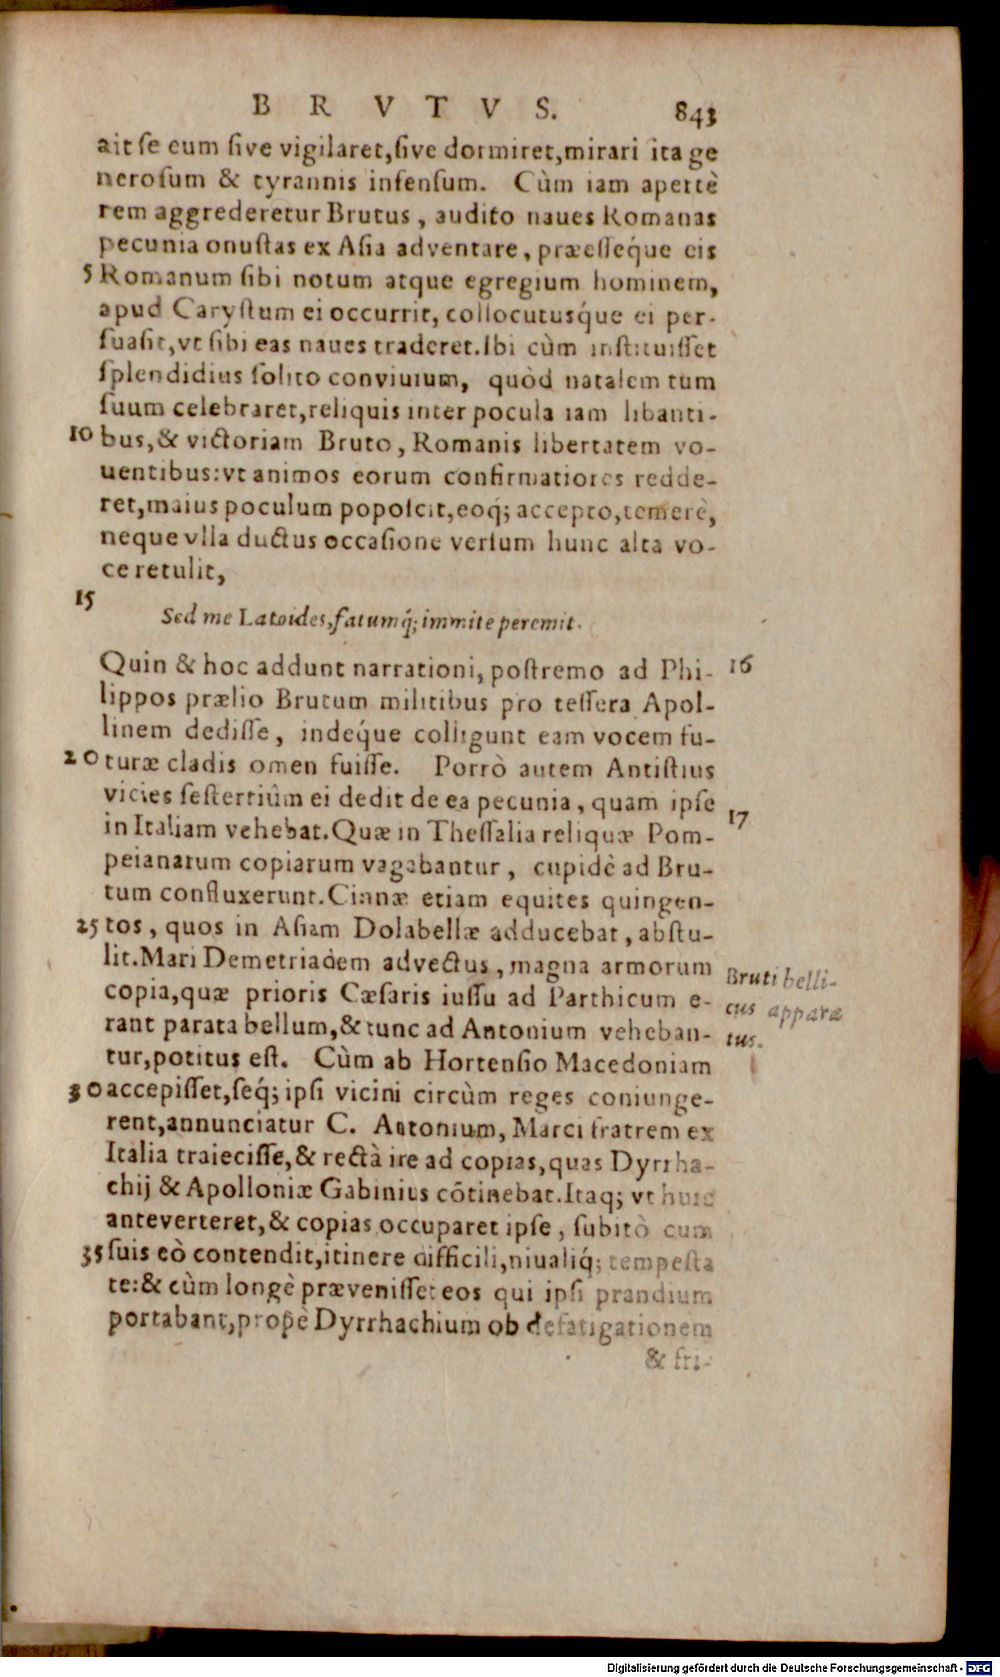 B R V T V S. 843
ait se eum sive vigilaret, sive dormiret, mirari ita ge
nerosum & tyrannis infensum. Cùm iam apertè
rem aggrederetur Brutus, audito naues Romanas
pecunia onustas ex Asia adventare, præesséque eis
5 Romanum sibi notum atque egregium hominem,
apud Carystum ei occurrit, collocutusq́ue ei per-
suasit, vt sibi eas naues traderet. Ibi cùm instituisset
splendidius solito conviuium, quòd natalem tum
suum celebraret, reliquis inter pocula iam libanti-
10 bus, & victoriam Bruto, Romanis libertatem vo-
uentibus: vt animos eorum confirmatiores redde-
ret, maius poculum poposcit, eoq́; accepto, temerè,
neque vlla ductus occasione versum hunc alta vo-
ce retulit,
15 Sed me Latoides, fatumq́; immite peremit.
Quin & hoc addunt narrationi, postremo ad Phi- 16
lippos prælio Brutum militibus pro tessera Apol-
linem dedisse, indéque colligunt eam vocem fu-
20 turæ cladis omen fuisse. Porrò autem Antistius
vicies sestertiûm ei dedit de ea pecunia, quam ipse
in Italiam vehebat. Quæ in Thessalia reliquæ Pom- 17
peianarum copiarum vagabantur, cupidè ad Bru-
tum confluxerunt. Cinnæ etiam equites quingen-
25 tos, quos in Asiam Dolabellæ adducebat, abstu-
lit. Mari Demetriadem advectus, magna armorum
copia, quæ prioris Cæsaris iussu ad Parthicum e-
rant parata bellum, & tunc ad Antonium veheban-
tur, potitus est. Cùm ab Hortensio Macedoniam
30 accepisset, seq́; ipsi vicini circùm reges coniunge-
rent, annunciatur C. Antonium, Marci fratrem ex
Italia traiecisse, & rectà ire ad copias, quas Dyrrha-
chij & Apolloniæ Gabinius cõtinebat. Itaq; vt huic
anteverteret, & copias occuparet ipse, subitò cum
35 suis eò contendit, itinere difficili, niualiq́; tempesta
te: & cùm longè prævenisset eos qui ipsi prandium
portabant, propè Dyrrhachium ob defatigationem
& fri-
Bruti belli-
cus apparæ
tus.
Digitalisierung gefördert durch die Deutsche Forschungsgemeinschaft - DFG